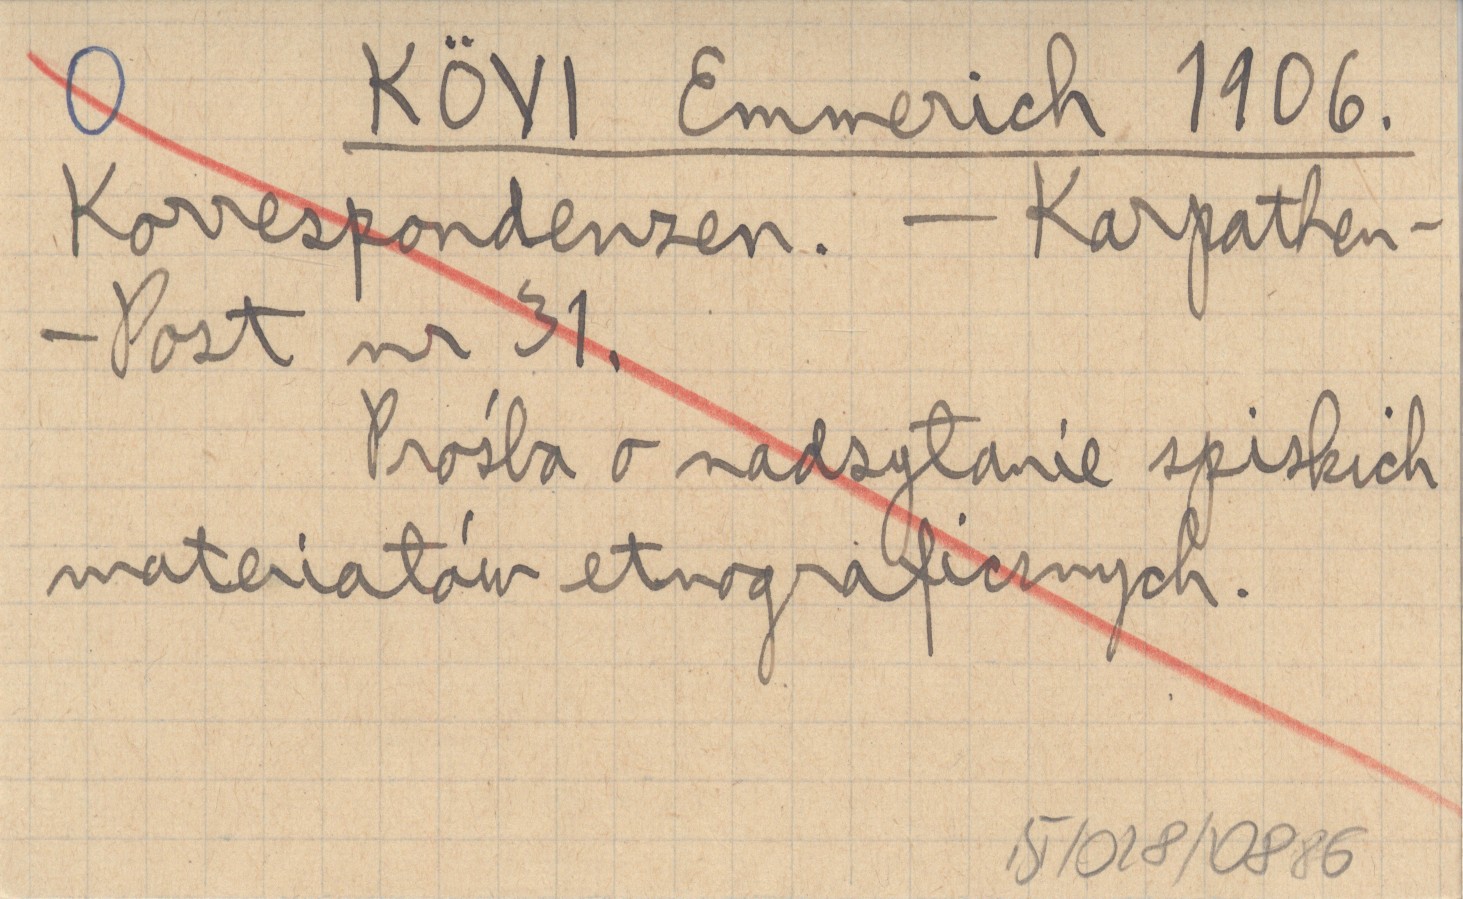 O KÖVI Emmerich 1906.
Korrespondenzen. — Karpathen-
-Post nr 31.
Prośba o nadsyłanie spiskich
materiałów etnograficznych.
/028/0886